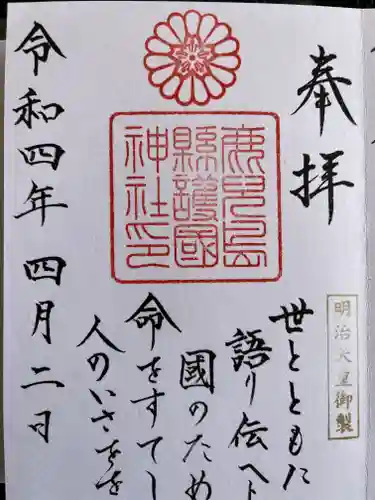 奉拝
明治天皇御製
世とともに
語り伝へよ
國のため
命をすてし
人のいさをを
鹿兒島
縣護國
神社印
令和四年 四月二日